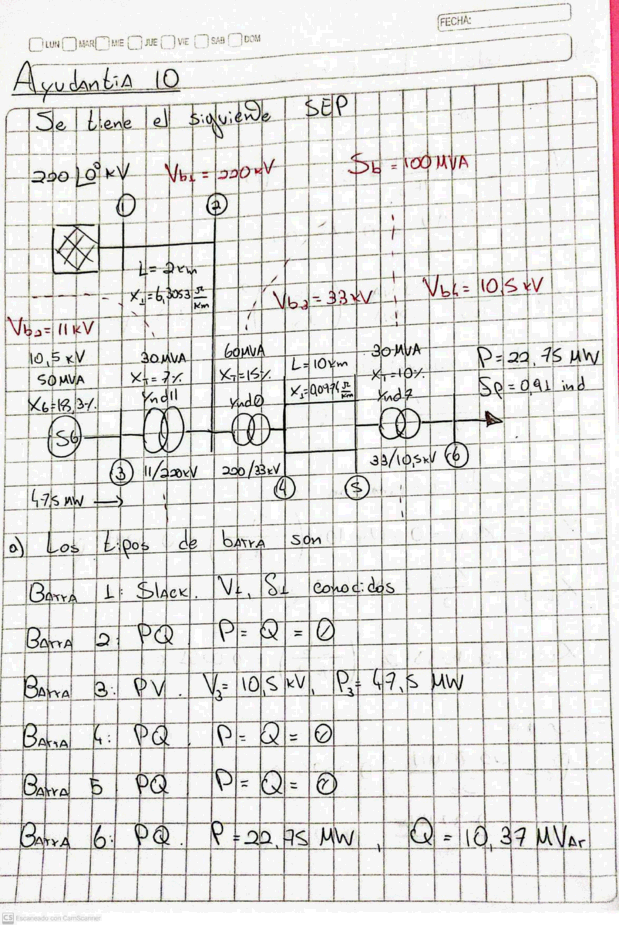 FECHA:
LUN MAR MIE JUE VIE SAB DOM
Ayudantia 10
Se tiene el siguiente SEP
220 ∠0° kV
Vb1 = 220 kV
Sb = 100 MVA
1
2
L = 2 km
X1 = 6,3053 Ω/km
Vb3 = 33 kV
Vb4 = 10,5 kV
Vb2 = 11 kV
10,5 kV
50 MVA
XG = 18,3%
SG
30 MVA
XT = 7%
Ynd11
11/220kV
60MVA
XT = 15%
Ynd0
220/33kV
L = 10 km
X1 = 0,0974 Ω/km
30 MVA
XT = 10%
Ynd7
33/10,5kV
P = 22,75 MW
fp = 0,91 ind
3
4
5
6
47,5 MW →
a) Los tipos de barra son
Barra 1: Slack. V1, δ1 conocidos
Barra 2: PQ P = Q = 0
Barra 3: PV. V3 = 10,5 kV, P3 = 47,5 MW
Barra 4: PQ. P = Q = 0
Barra 5 PQ P = Q = 0
Barra 6: PQ. P = 22,75 MW, Q = 10,37 MVAr
CS Escaneado con CamScanner